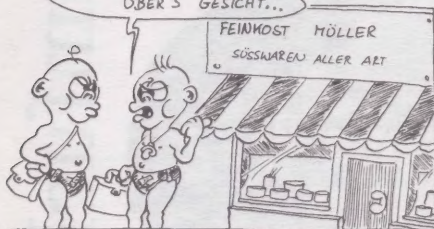 ÜBER'S GESICHT...
FEINKOST MÖLLER
SÜSSWAREN ALLER ART